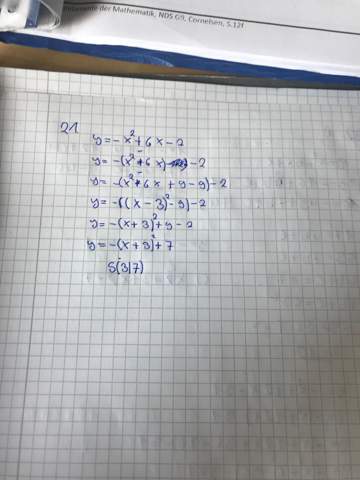 Elemente der Mathematik, NDS G9, Cornelsen, S.12f
21.
y=-x²+6x-2
y=-(x²-6x)-2
y=-(x²-6x+9-9)-2
y=-((x-3)²-9)-2
y=-(x+3)²+9-2
y=-(x+3)²+7
S(3|7)